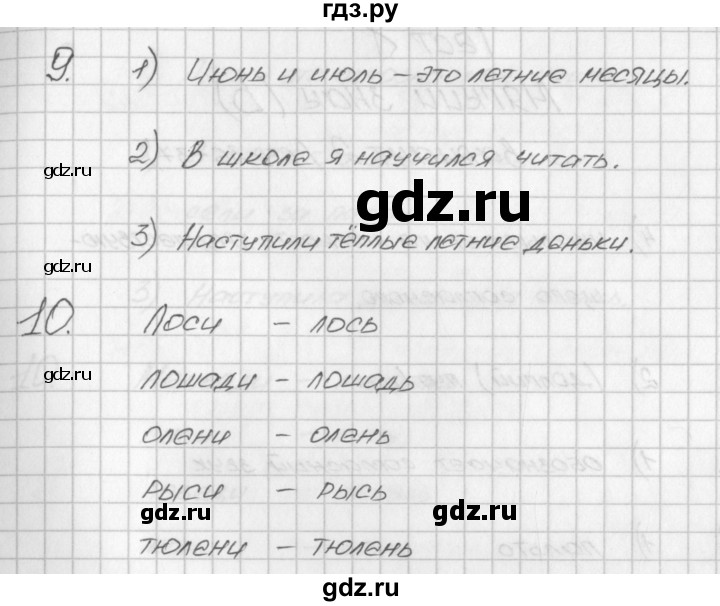 гдз.ру
9. 1) Июнь и июль – это летние месяцы.
2) В школе я научился читать.
gdz.ru
gdz.ru
3) Наступили тёплые летние деньки.
gdz.ru
10. Лоси – лось
gdz.ru
лошади – лошадь
олени – олень
рыси – рысь
gdz.ru
gdz.ru
тюлени – тюлень
gdz.ru